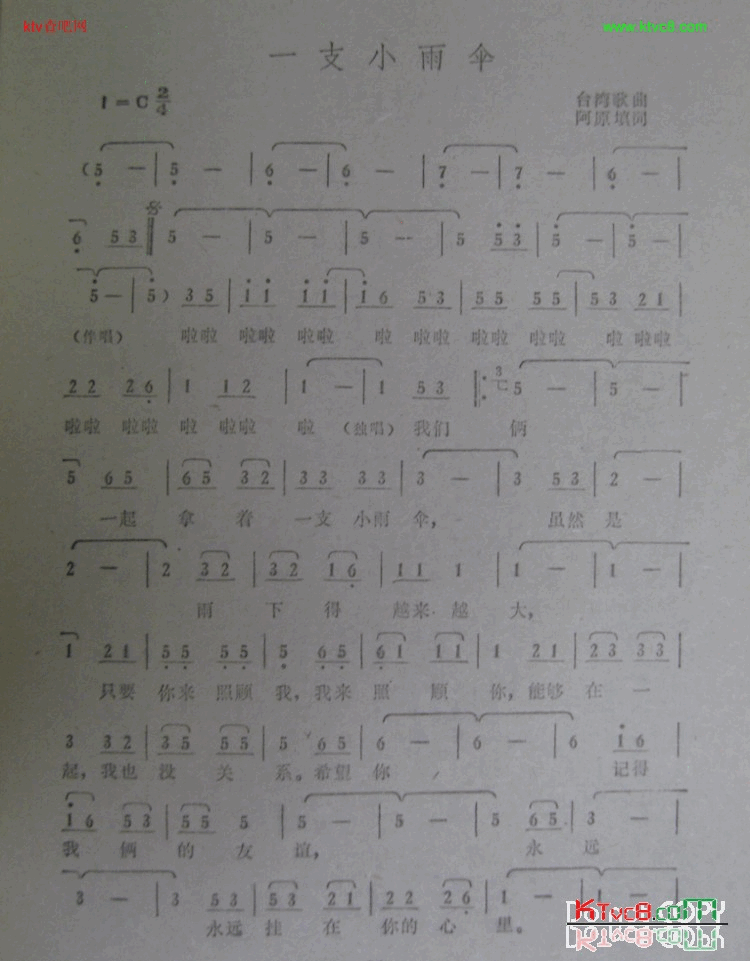 ktv音吧网
www.ktvc8.com
一支小雨伞
1=C 2/4
台湾歌曲
阿原填词
(5 - | 5 - | 6 - | 6 - | 7 - | 7 - | 6 - |
6 53 | 5 - | 5 - | 5 - | 5 53 | 5 - | 5 - |
5 - | 5) 35 | 11 11 | 16 53 | 55 55 | 53 21 |
(伴唱) 啦啦 啦啦 啦啦 啦 啦啦 啦啦 啦啦 啦 啦啦
22 26 | 1 12 | 1 - | 1 53 | 5 - | 5 - |
啦啦 啦啦 啦 啦啦 啦 (独唱) 我们 俩
5 65 | 65 32 | 33 33 | 3 - | 3 53 | 2 - |
一起 拿 着 一支 小雨 伞, 虽然 是
2 - | 2 32 | 32 16 | 11 1 | 1 - | 1 - |
雨 下 得 越来 越 大,
1 21 | 55 55 | 5 65 | 61 11 | 1 21 | 23 33 |
只要 你来 照顾 我,我来 照 顾 你,能够 在 一
3 32 | 35 55 | 5 65 | 6 - | 6 - | 6 16 |
起,我也 没 关 系。希望 你 记得
16 53 | 55 5 | 5 - | 5 - | 5 65 | 3 - |
我 俩 的 友 谊, 永 远
3 - | 3 53 | 53 21 | 22 26 | 1 - | 1 -
永远 挂 在 你的 心 里。
KTvc8.com
DONOT COPY